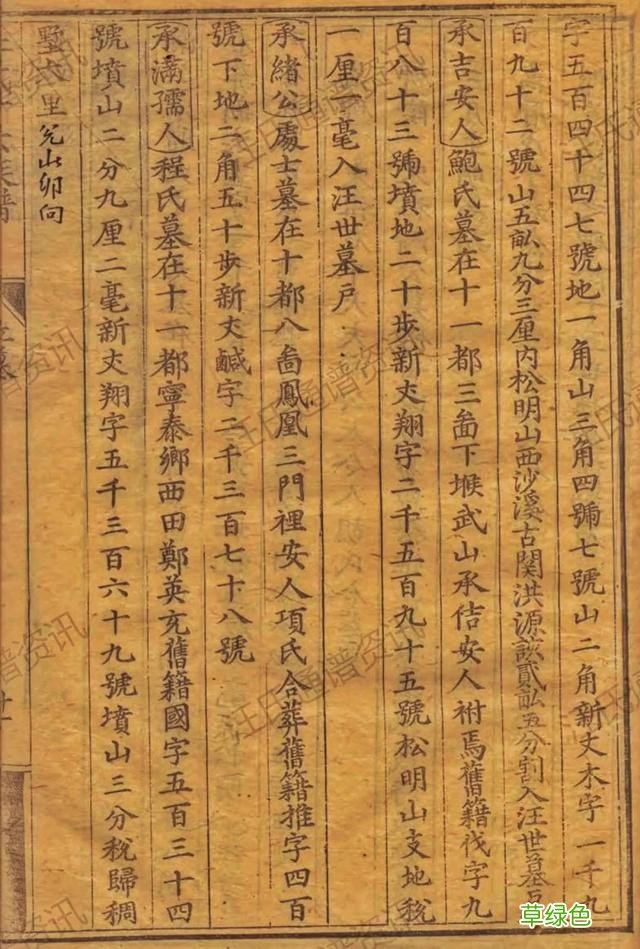 字五百四十四七號地一角山三角四號七號山二角新丈木字一千九
百九十二號山五畝九分三厘內松明山西沙溪古関洪源該貳畝五分割入汪世墓戶
承吉安人鮑氏墓在十一都三啚下堠武山承佶安人祔焉舊籍伐字九
百八十三號墳地二十步新丈翔字二千五百九十五號松明山支地稅
一厘一毫入汪世墓戶
承緒公處士墓在十都八啚鳳凰三門裡安人項氏合葬舊籍推字四百
號下地二角五十步新丈鹹字二千三百七十八號
承滿孺人程氏墓在十一都寧泰鄉西田鄭英充舊籍國字五百三十四
號墳山二分九厘二毫新丈翔字五千三百六十九號墳山三分稅歸稠
墅六里兊山卯向
汪氏通譜资讯
草绿色